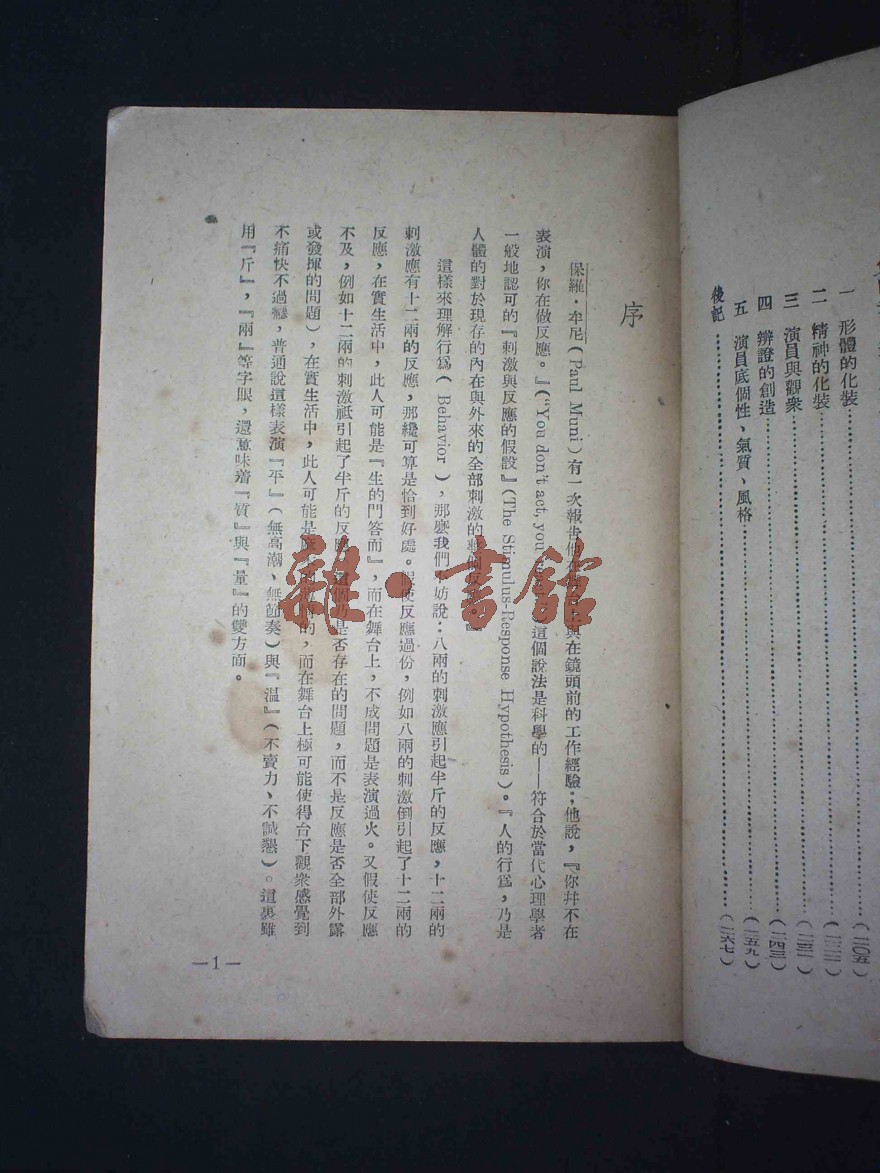 一 形體的化裝……………………(一〇五)
二 精神的化裝……………………
三 演員與觀衆……………………
四 辨證的創造……………………(一四三)
五 演員底個性、氣質、風格……………………(一五九)
後記……………………(一六七)
序
保羅·牟尼(Paul Muni)有一次報告他在與在鏡頭前的工作經驗;他說,『你并不在
表演,你在做反應。』(“You don't act, you 這個說法是科學的——符合於當代心理學者
一般地認可的『刺激與反應的假設』(The Stimulus-Response Hypothesis)。『人的行爲,乃是
人體的對於現存的內在與外來的全部刺激的整個反
這樣來理解行爲(Behavior),那麼我們不妨說:八兩的刺激應引起半斤的反應,十二兩的
刺激應有十二兩的反應,那纔可算是恰到好處。假使反應過份,例如八兩的刺激倒引起了十二兩的
反應,在實生活中,此人可能是『生的門答而』,而在舞台上,不成問題是表演過火。又假使反應
不及,例如十二兩的刺激祇引起了半斤的反應,這個乃是否存在的問題,而不是反應是否全部外露
或發揮的問題),在實生活中,此人可能是的,而在舞台上極可能使得台下觀衆感覺到
不痛快不過癮,普通說這樣表演『平』(無高潮,無節奏)與『溫』(不賣力、不誠懇)。這裏雖
用『斤』,『兩』等字眼,還意味着『質』與『量』的雙方面。
—1—
雜·書館